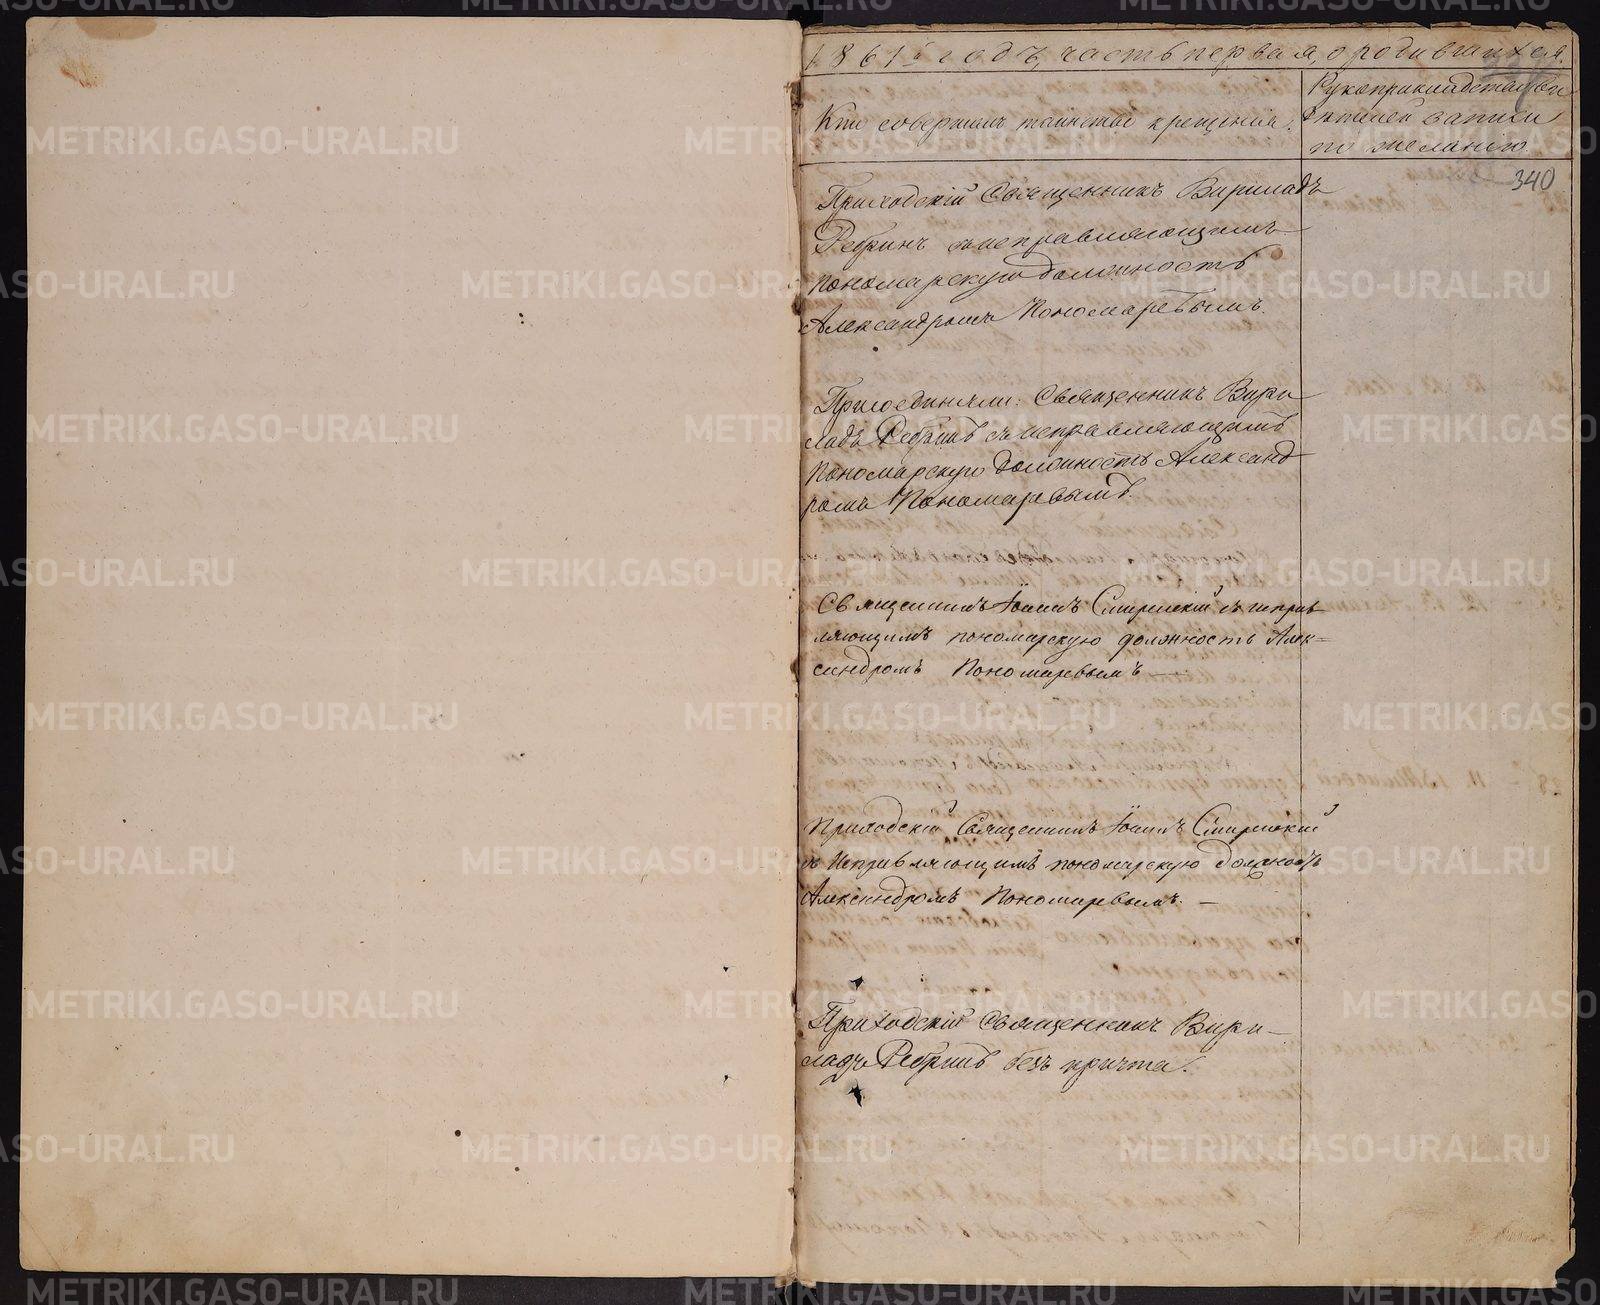 1861 годъ, часть первая, о родившихся.
Кто совершалъ таинство крещенія.
Рукоприкладство
записи
по желанію.
340
Приходскій Священникъ Вириладъ
Ребринъ съ исправляющимъ
пономарскую должность
Александромъ Пономаревымъ.
Присоединяли: Священникъ Вири
ладъ Ребринъ съ исправляющимъ
Пономарскую должность Александ
ромъ Пономаревымъ.
Священникъ Іоаннъ Смиренскій съ исправ
ляющимъ пономарскую должность Алек=
сандромъ Пономаревымъ —
Приходскій Священникъ Іоаннъ Смиренскій
съ Исправляющимъ пономарскую должность
Александромъ Пономаревымъ. —
Приходскій Священникъ Вири—
ладъ Ребринъ безъ причта.
METRIKI.GASO-URAL.RU